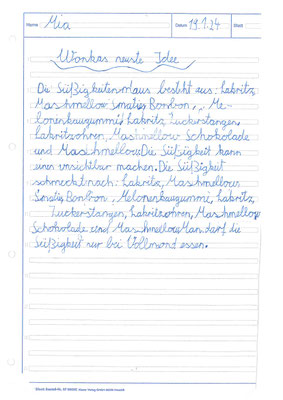 Name: Mia Datum 19.1.24 Blatt
Wonkas neuste Idee
Die Süßigkeitenmaus besteht aus: Lakritz,
Mashmellow Smatis, Bonbon, Me-
lonenkaugummi, Lakritz, Zuckerstangen,
Lakritzohren, Mashmellow Schokolade
und Maschmellow. Die Süßigkeit kann
einen unsichtbar machen. Die Süßigkeit
schmeckt nach: Lakritz, Mashmellow,
Smatis, Bonbon, Melonenkaugummi, Lakritz,
Zuckerstangen, Lakritzohren, Mashmellow
Schokolade und Mashmellow. Man darf die
Süßigkeit nur bei Vollmond essen.